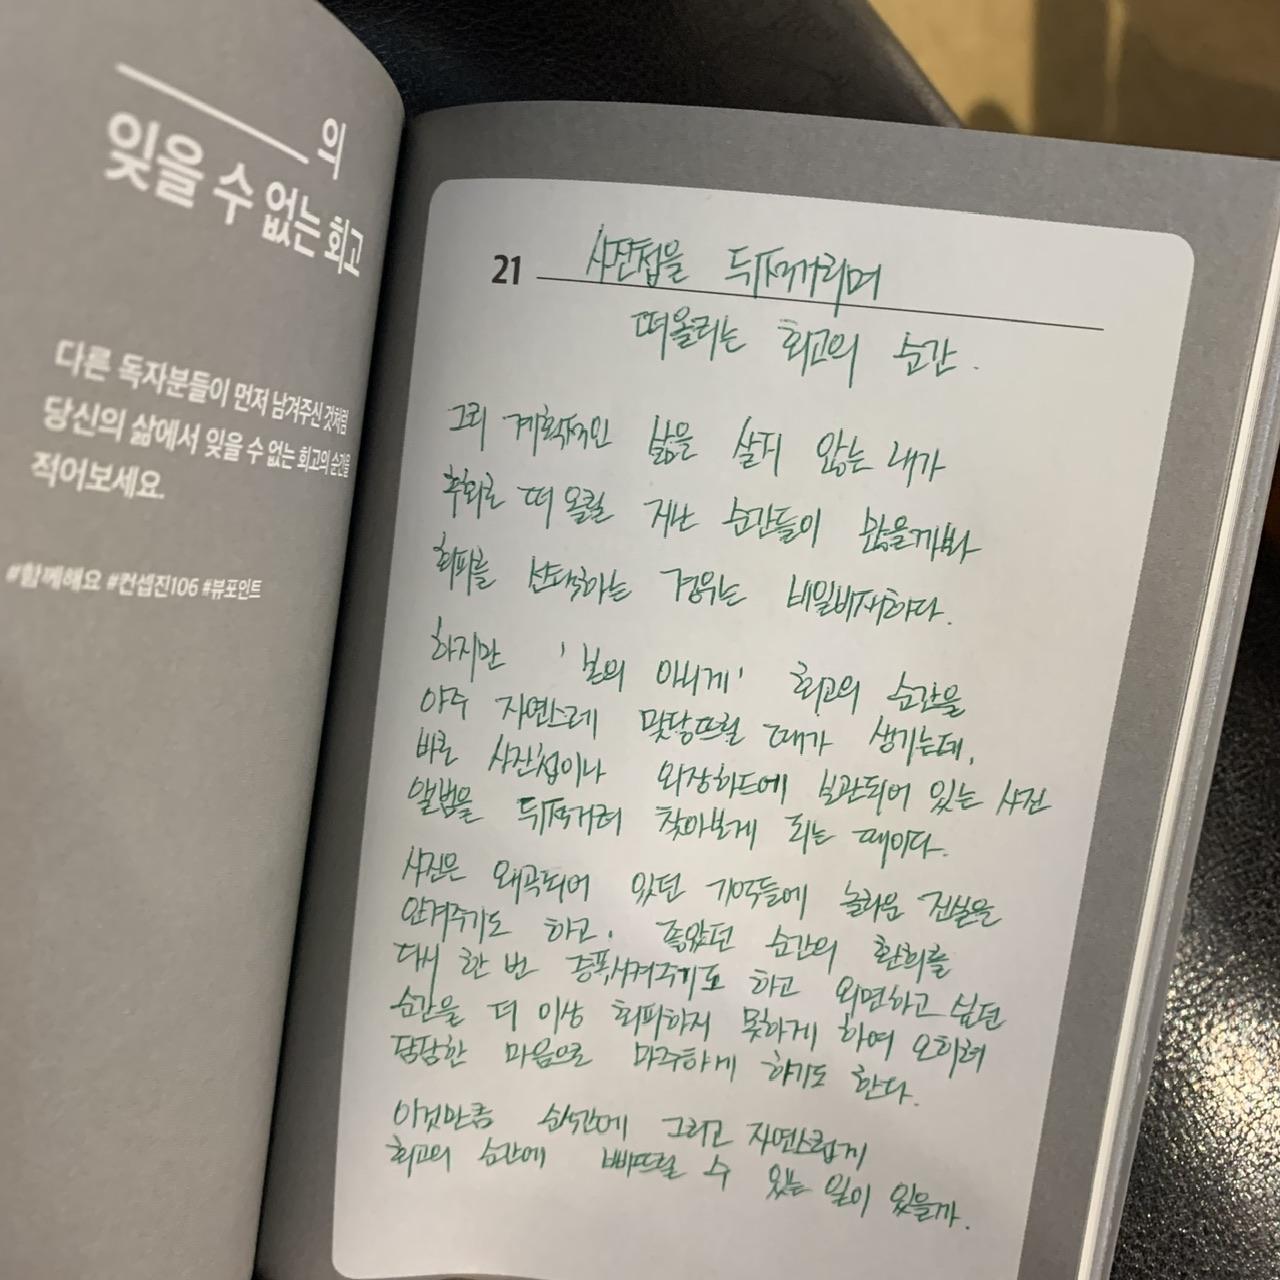 의
잊을 수 없는 회고
다른 독자분들이 먼저 남겨주신 것처럼
당신의 삶에서 잊을 수 없는 회고의 순간을
적어보세요.
#함께해요 #컨셉진106 #뷰포인트
21 사진첩을 뒤적거리며
떠올리는 회고의 순간.
그리 계획적인 삶을 살지 않는 내가
후회로 떠올릴 지난 순간들이 많을까봐
회피를 선택하는 경우는 비일비재하다.
하지만 '본의 아니게' 회고의 순간을
아주 자연스레 맞닥뜨릴 때가 생기는데,
바로 사진첩이나 외장하드에 보관되어 있는 사진
앨범을 뒤적거려 찾아보게 되는 때이다.
사진은 왜곡되어 있던 기억들에 놀라운 진실을
안겨주기도 하고, 좋았던 순간의 환희를
다시 한 번 증폭시켜주기도 하고 외면하고 싶던
순간을 더 이상 회피하지 못하게 하여 오히려
담담한 마음으로 마주하게 하기도 한다.
이것만큼 순식간에 그리고 자연스럽게
회고의 순간에 빠뜨릴 수 있는 일이 있을까.